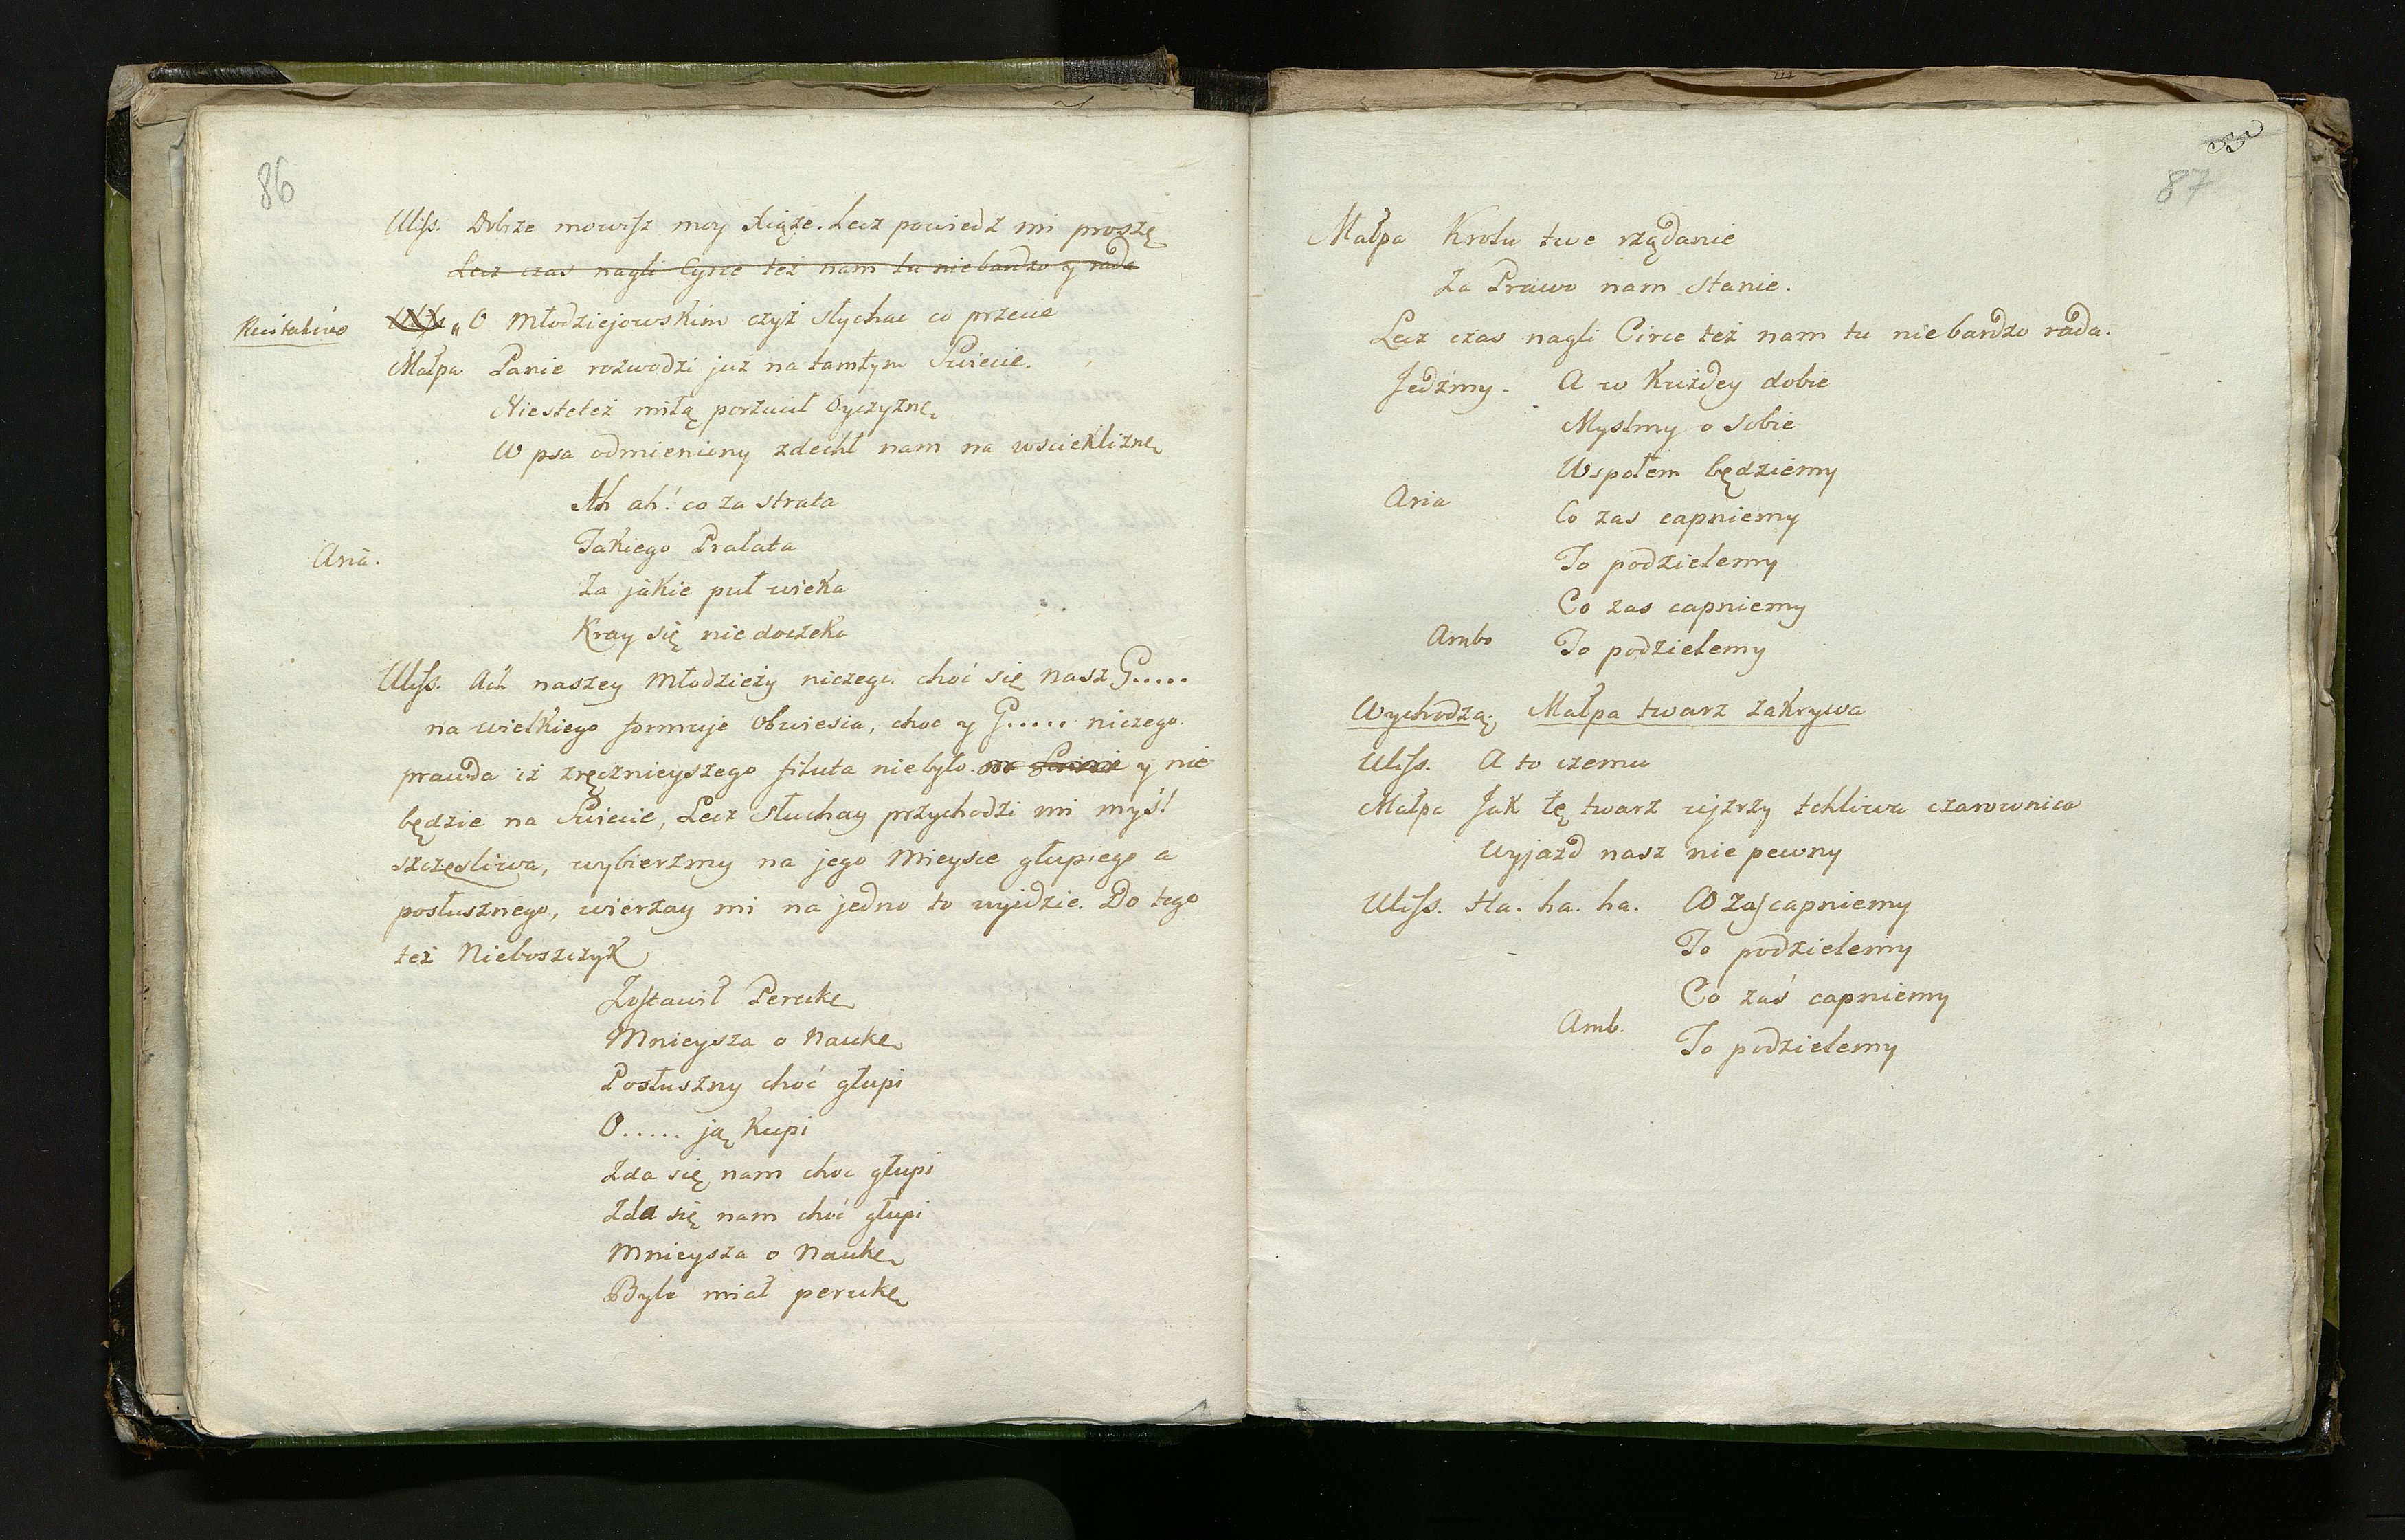 86
Uliss. Dobrze mowisz moy Xiąże. Lecz powiedz mi proszę
Lecz czas nagli Cyrce też nam tu niebardzo y rada
Recitativo Uliss „O Młodziejowskim czyż słychac co przecie
Małpa Panie rozwodzi już na tamtym Swiecie.
Niesteteż miłą porzucił Oyczyznę
W psa odmieniony zdechł nam na wsciekliznę
Ah ah! co za strata
Takiego Pralata
Aria.
Za jakie puł wieka
Kray się nie doczeka
Uliss. Ach naszey Młodzieży niczego. choć się nasz G.....
na wielkiego formuje Obwiesia, choc y G..... niczego.
prawda iż zręcznieyszego filuta niebyło. na Swiecie y nie
będzie na Swiecie, Lecz Słuchay przychodzi mi myśl
szczęsliwa, wybierzmy na jego Mieysce głupiego a
posłusznego, wierzay mi na jedno to wyidzie. Do tego
też Nieboszczyk
Zostawił Perukę
Mnieysza o Naukę
Posłuszny choć głupi
O..... ją Kupi
Zda się nam choc głupi
Zda się nam choć głupi
Mnieysza o Naukę
Byle miał perukę
87
Małpa Krolu twe rządanie
Za Prawo nam Stanie.
Lecz czas nagli Circe też nam tu niebardzo rada.
Jedźmy. A w Każdey dobie
Myslmy o Sobie
Wspołem będziemy
Aria
Co zas capniemy
To podzielemy
Co zas capniemy
Ambo To podzielemy
Wychodzą; Małpa twarz zakrywa
Uliss. A to czemu
Małpa Jak tę twarz ujzrzy tchliwa czarownica
Wyjazd nasz nie pewny
Uliss. Ha. ha. ha. Co Zas capniemy
To podzielemy
Co zaś capniemy
Amb.
To podzielemy